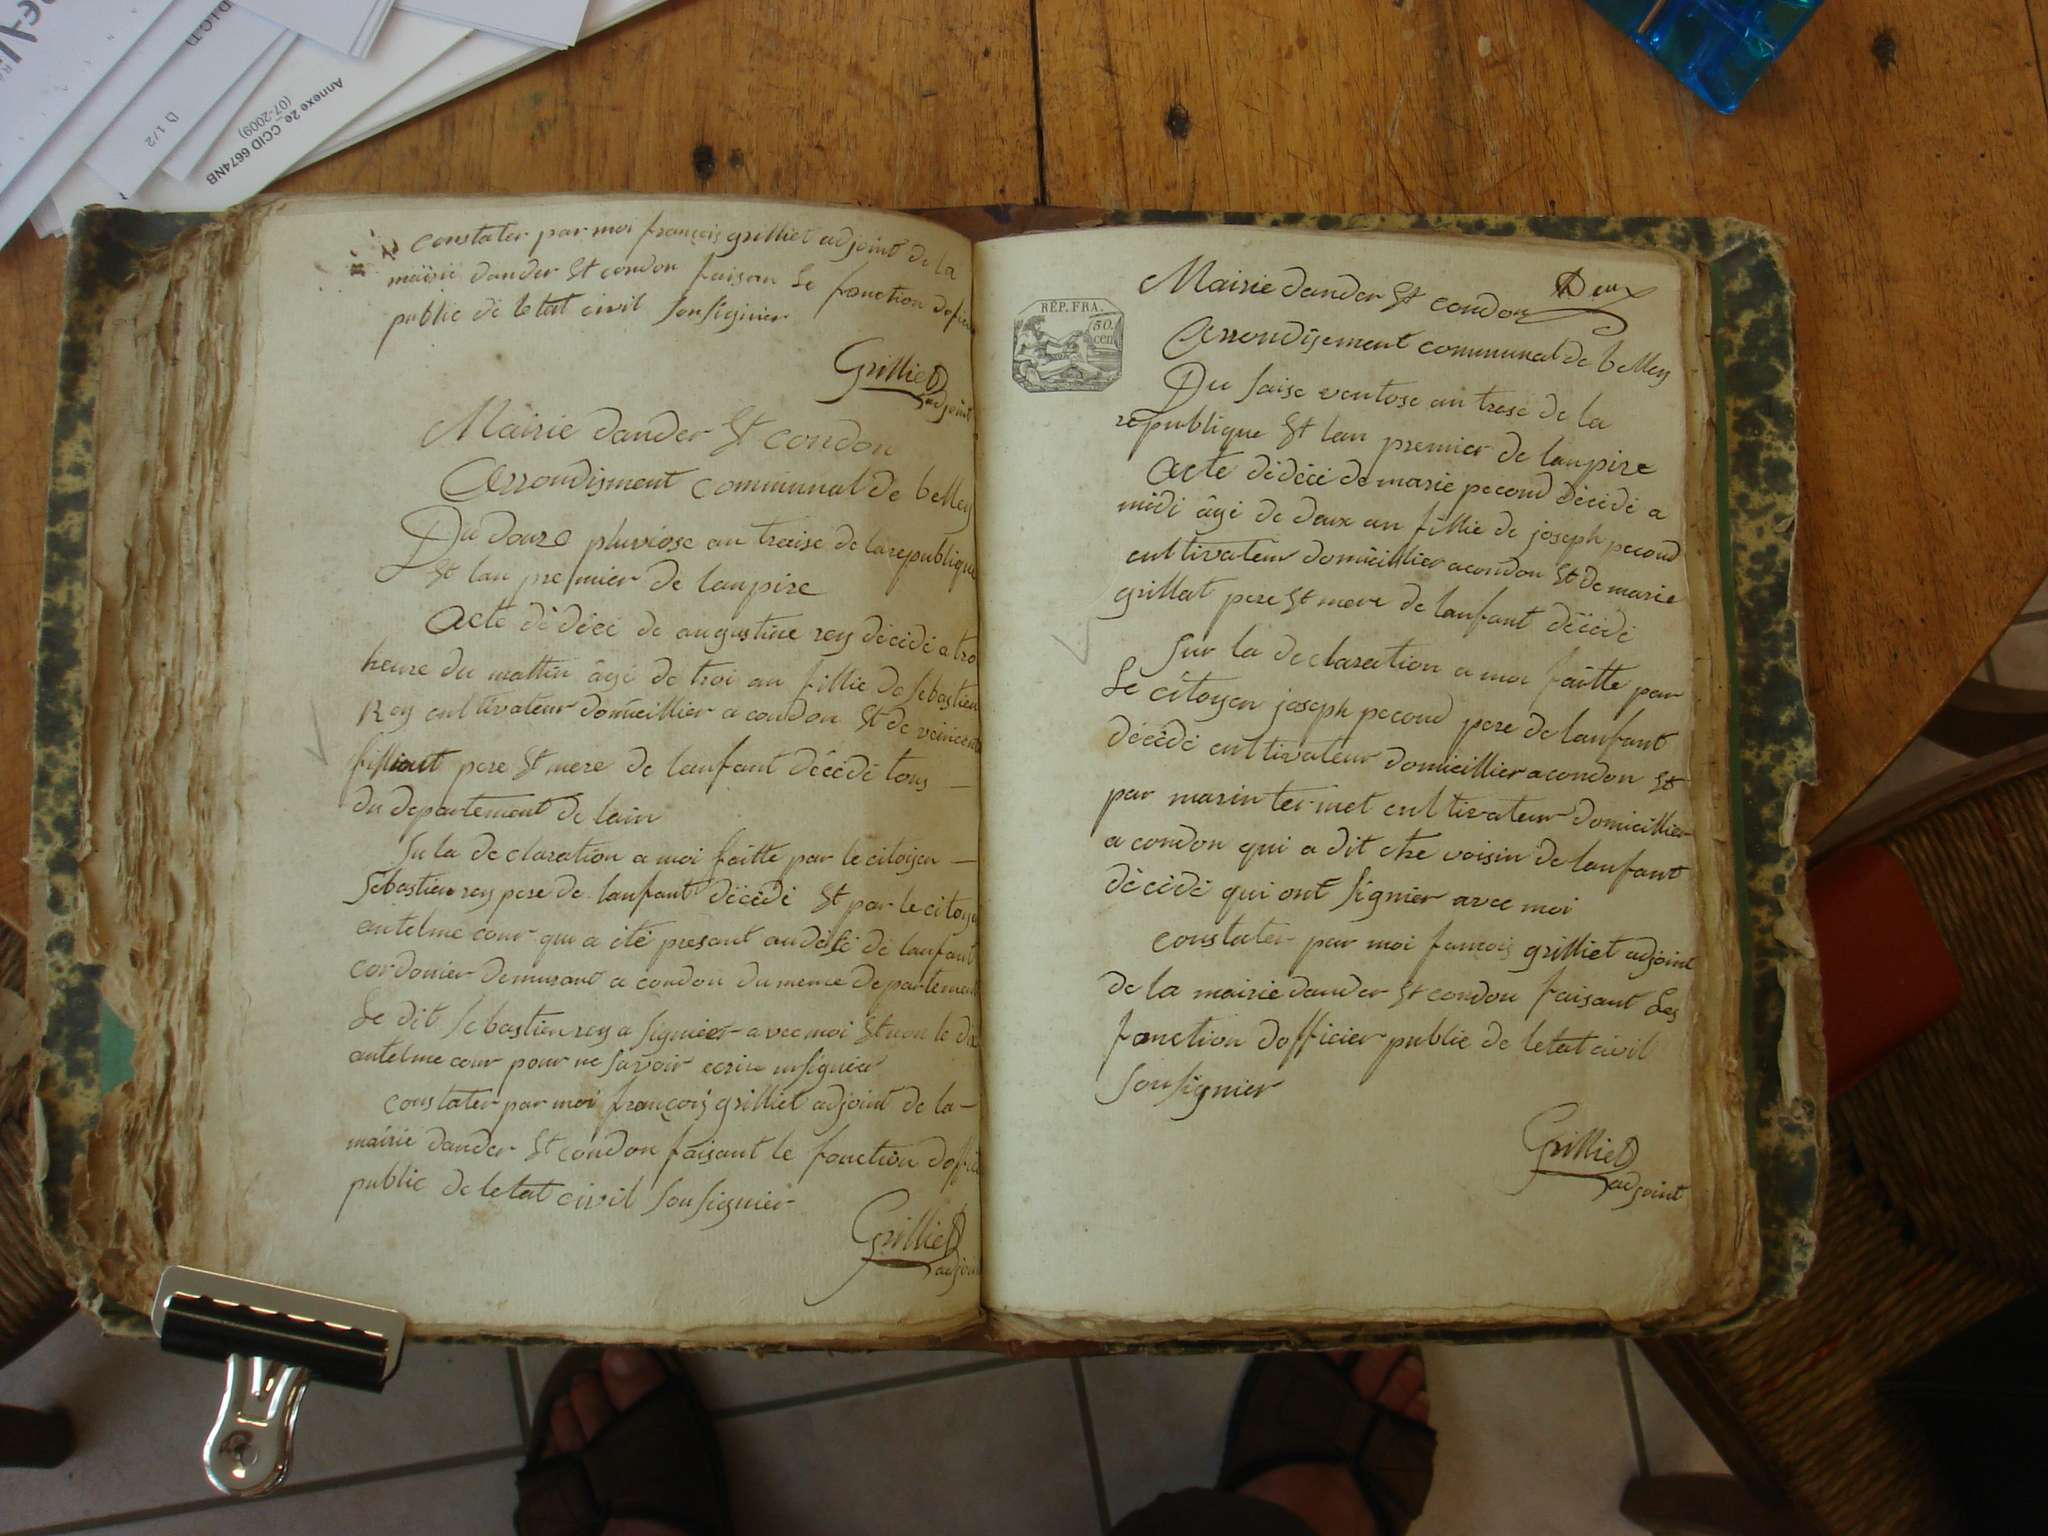 D.I.C.N
D 1/2
Annexe 2e_CCID 6674NB
(07-2009)
constater par moi françois grilliet adjoint de la
mairie dander St condon faisan le fonction
public de letat civil sousignier
Grilliet
adjoint
Mairie dander St condon
Arrondisment communal de belley
Du douze pluviose an traise de la republique
St lan premier de lanpire
Acte dédécé de augustine rey décédé a tro
heure du mattin âgé de troi an fillie de sebastien
Rey cultivateur domicillier a condon St de
pere St mere de lanfant décédé tous
du departement de lain
Su la declaration a moi faitte par le citoyen
sebastien rey pere de lanfant décédé St par le citoye
antelme cour qui a été présant audésé de lanfant
cordonier demurant a condon du meme departement
Le dit sebastien rey a signier avec moi St non le dit
antelme cour pour ne savoir ecrire
constater par moi françois grilliet adjoint de la
mairie dander St condon faisant le fonction doffi
public de letat civil sousignier
Grilliet
adjoint
Deux
Mairie dander St condon
REP. FRA.
50.
cen
Arrondisement communal de belley
Du saise ventose an trese de la
republique St lan premier de lanpire
Acte dédécé de marie pecoud décédé a
midi âgé de deux an fillie de joseph pecoud
cultivateur domicillier a condon St de marie
grillat pere St mere de lanfant décédé
Sur la declaration a moi faitte par
Le citoyen joseph pecoud pere de lanfant
décédé cultivateur domicillier a condon St
par marin termet cultivateur domicillier
a condon qui a dit etre voisin de lanfant
décédé qui ont signier avec moi
constater par moi francois grilliet adjoint
de la mairie dander St condon faisant Les
fonction dofficier public de letat civil
sousignier
Grilliet
adjoint